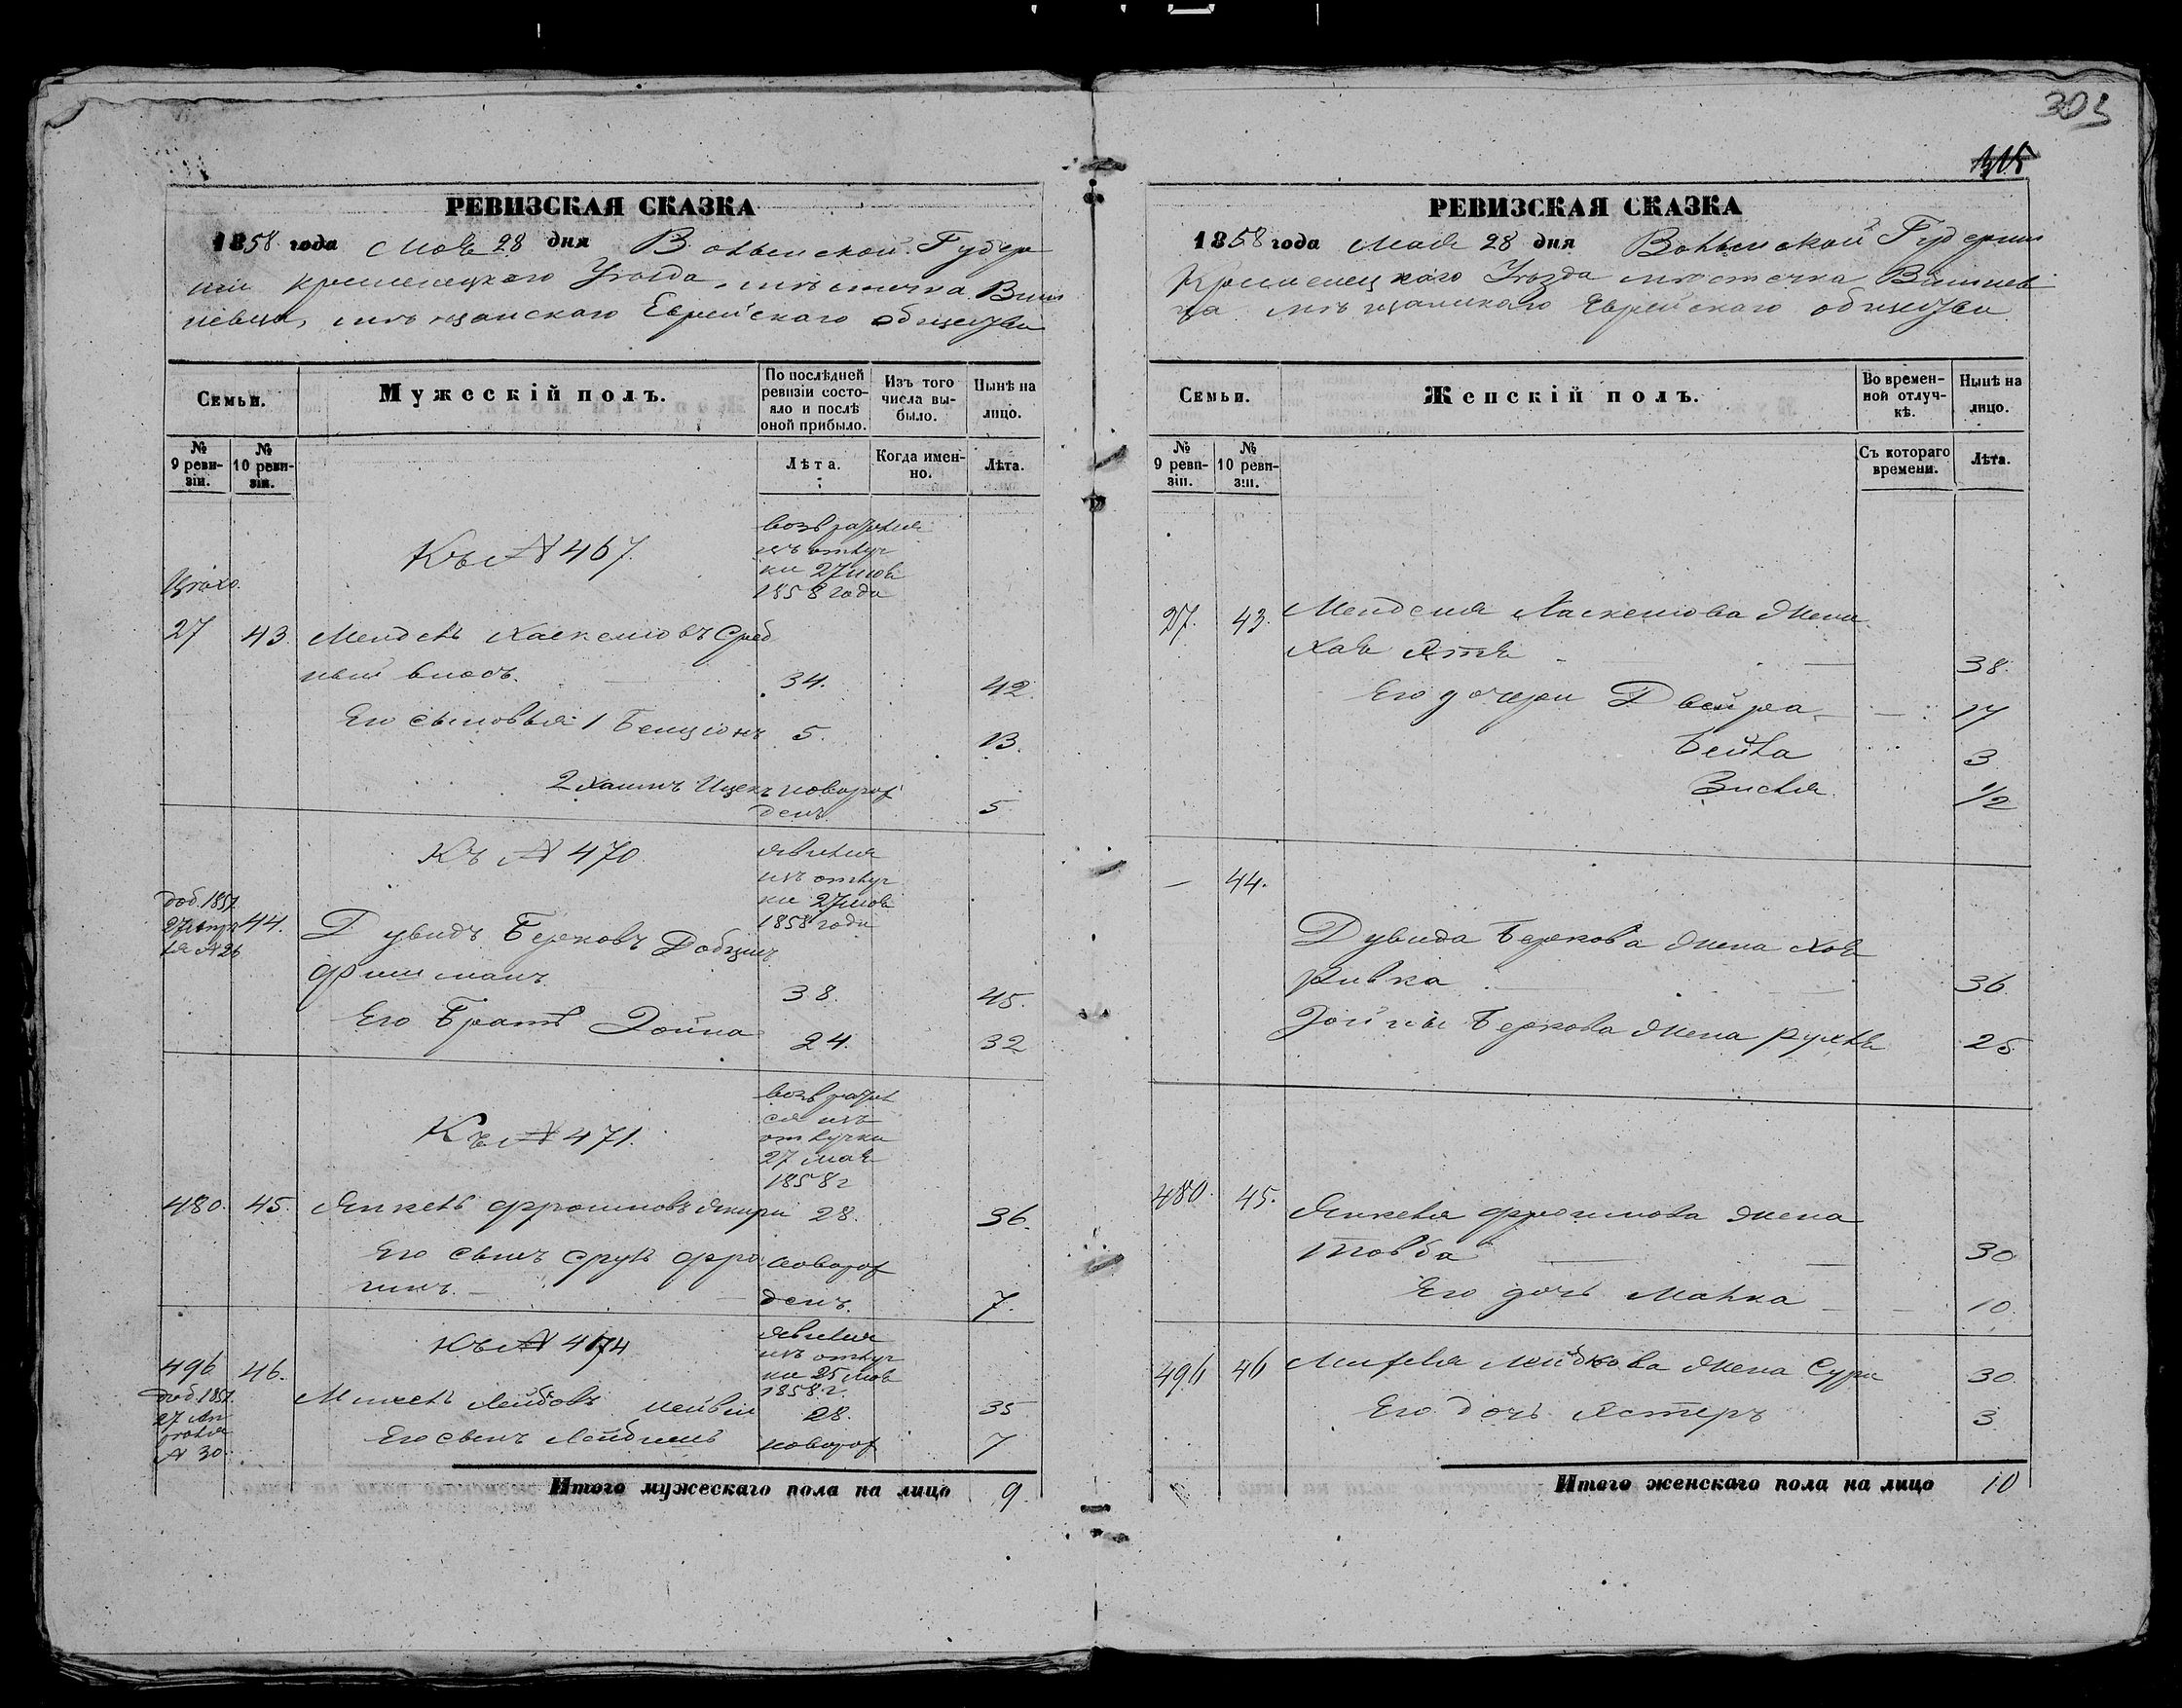 303
315
РЕВИЗСКАЯ СКАЗКА
1858 года Мая 28 дня Волынской Губер
ніи Кременецкаго Уѣзда, мѣстечка Виш
невца, мѣщанскаго Еврейскаго общества
Семьи.
Мужескій полъ.
По послѣдней ревизіи состо-
яло и послѣ
оной прибыло.
Изъ того
числа вы-
было.
Нынѣ на
лицо.
№
9 реви-
зіи.
№
10 реви-
зіи.
Лѣта.
Когда имен-
но.
Лѣта.
Къ № 467.
возвратился
изъ отлуч
ки 27 мая
1858 года
27 43. Мендель Хаскелювъ Сред
34. 42.
Его сыновья 1 Бенціонъ 5. 13.
2 Хаимъ Ицекъ новорож
денъ 5.
Къ № 470
явился
изъ отлуч
ки 27 мая
1858 года
доб. 1851
27 апрѣ
ля № 26
44. Дувидъ Берковъ
Фишманъ 38. 45.
Его Братъ Зойна 24. 32
Къ № 471.
возврат
ся изъ
отлучки
27 мая
1858 г
480. 45. Янкель Фроимовъ 28. 36.
Его сынъ Сруль Фро новорож
имъ. денъ. 7.
Къ № 474
явился
изъ отлуч
ки 25 мая
1858 г.
496 46.
доб. 1851.
27 Ап
рѣля
№ 30.
Лейбовъ 28. 35
Его сынъ новорож 7
Итого мужескаго пола на лицо 9
РЕВИЗСКАЯ СКАЗКА
1858 года Мая 28 дня Волынской Губерніи
Кременецкаго Уѣзда мѣстечка Вишнев
ца мѣщанскаго Еврейскаго общества
Семьи.
Женскій полъ.
Во времен-
ной отлуч-
кѣ.
Нынѣ на
лицо.
№
9 реви-
зіи.
№
10 реви-
зіи.
Съ котораго
времени.
Лѣта.
27. 43. Менделя Хаскелюва жена
Хая 38.
Его дочери Двейра 17
Бейла 3
Зисля 1/2
— 44.
Дувида Беркова жена Хая
Ривка 36
Зойны Беркова жена Рухля 25
480. 45. Янкеля Фроимова жена
Товба 30
Его дочь Малка 10.
496 46 Лейбова жена Сура 30.
Его дочь Эстеръ 3
Итого женскаго пола на лицо 10